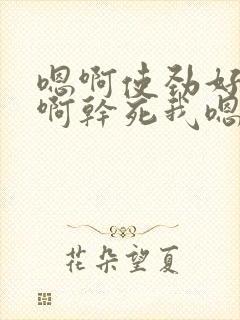 嗯啊使劲好
啊幹死我嗯
花朵望夏